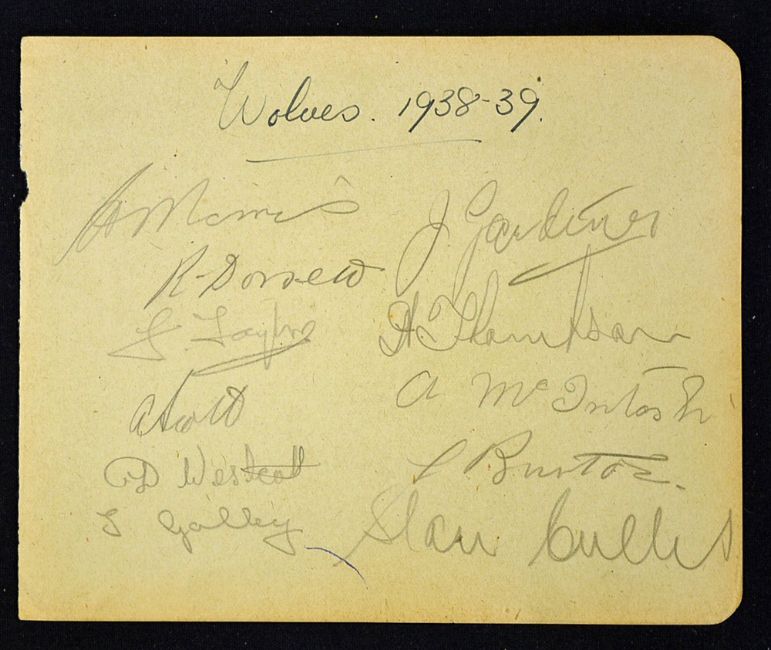 Wolves. 1938-39.
W Morris
R. Dorsett
J. Taylor
A Scott
D Westcott
T Galley
J Gardiner
H Thompson
A McIntosh
S Burton.
Stan Cullis